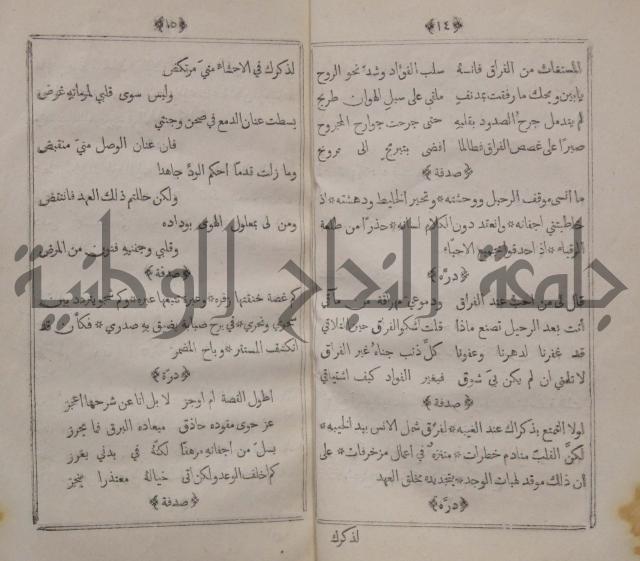 ﴿١٤﴾
المستغاث من الفراق فانه سلب الفؤاد وشد نحو الروح
يا بين ويحك ما رفقت بمدنف ملقى على سبل الهوان طريح
لم يندمل جرح الصدود بقلبه حتى جرحت جوارح المجروح
صبرا على غصص الفراق فطالما افضى بتبريح الى ترويح
﴿صدفة﴾
ما انسى موقف الرحيل ووحشته * وتحير الخليط ودهشته * اذ
خاطبتني اجفانه * وانعقد دون الكلام لسانه * حذرا من
الرقباء * اذ احدقوا الاحباء
﴿درة﴾
قال لي من احب عند الفراق ودموعي مهراقة من مآقي
أنت بعد الرحيل تصنع ماذا قلت اشكو الفراق حين التلاقي
قد غفرنا لدهرنا وعفونا كل ذنب جناه غير الفراق
لا تظني ان لم يكن بي شوق فبغير الفواد كيف اشتياقي
﴿صدفة﴾
لولا التمتع بذكراك عند الغيبه * لفرق شمل الانس بيد الخيبه *
لكن القلب منادم خطرات * متنزه في اعمال مزخرفات * على
أن ذلك موقد لهبات الوجد * بتجديد مخلق العهد
﴿درة﴾
لذكرك
﴿١٥﴾
لذكرك في الاحشاء مني مرتكض
وليس سوى قلبي لمرماته غرض
بسطت عنان الدمع في صحن وجنتي
فان عنان الوصل مني منقبض
وما زلت قدما أحكم الود جاهدا
ولكن حالتم ذلك العهد فانتقض
ومن لي بمعلول الهوى بوداده
وقلبي وجفنيه فنون من المرض
﴿صدفة﴾
كم غصة خنقتها زفره * وعبرة تتبعها عبره * وكم شجو يتردد بين
سحري ونحري * في برح صبابة يضيق به صدري * فكأن قد
انكشف المستتر * وباح المضمر
﴿درة﴾
اطول القصة ام اوجز لا بل انا عن شرحها اعجز
عز حوى مقوده حاذق ميعاده البرق فما يحرز
يسل من اجفانه مرهفا لكنه في بدني يغرز
كم اخلف الوعد ولكن اتى خياله معتذرا ينجز
﴿صدفة﴾
جامعة النجاح الوطنية